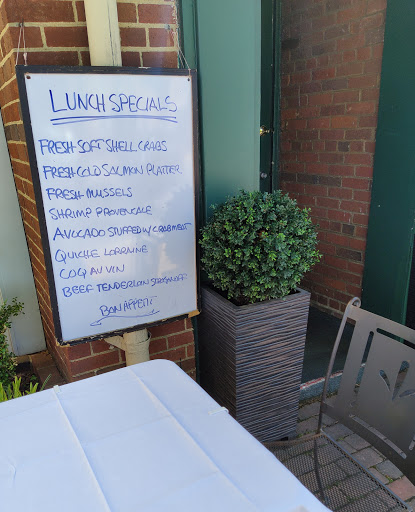 LUNCH SPECIALS
FRESH SOFT SHELL CRABS
FRESH COLD SALMON PLATTER
FRESH MUSSELS
SHRIMP PROVENCALE
AVOCADO STUFFED W/ CRABMEAT
QUICHE LORRAINE
COQ AU VIN
BEEF TENDERLOIN STROGANOFF
BON APPETIT